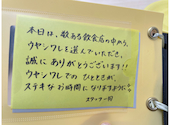 本日は、数ある飲食店の中から、
ウヤンワレを選んでいただき、
誠にありがとうございます!!
ウヤンワレでの ひとときが、
ステキなお時間になりますように。
スタッフ一同